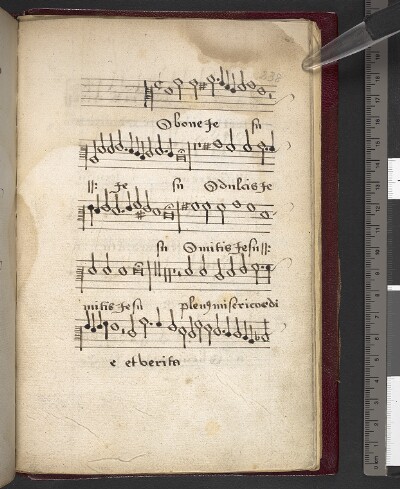 O bone Je su
||: Je su O dulcis Je
su O mitis Jesu ||:
mitis Jesu plen9 misericordi
e et verita